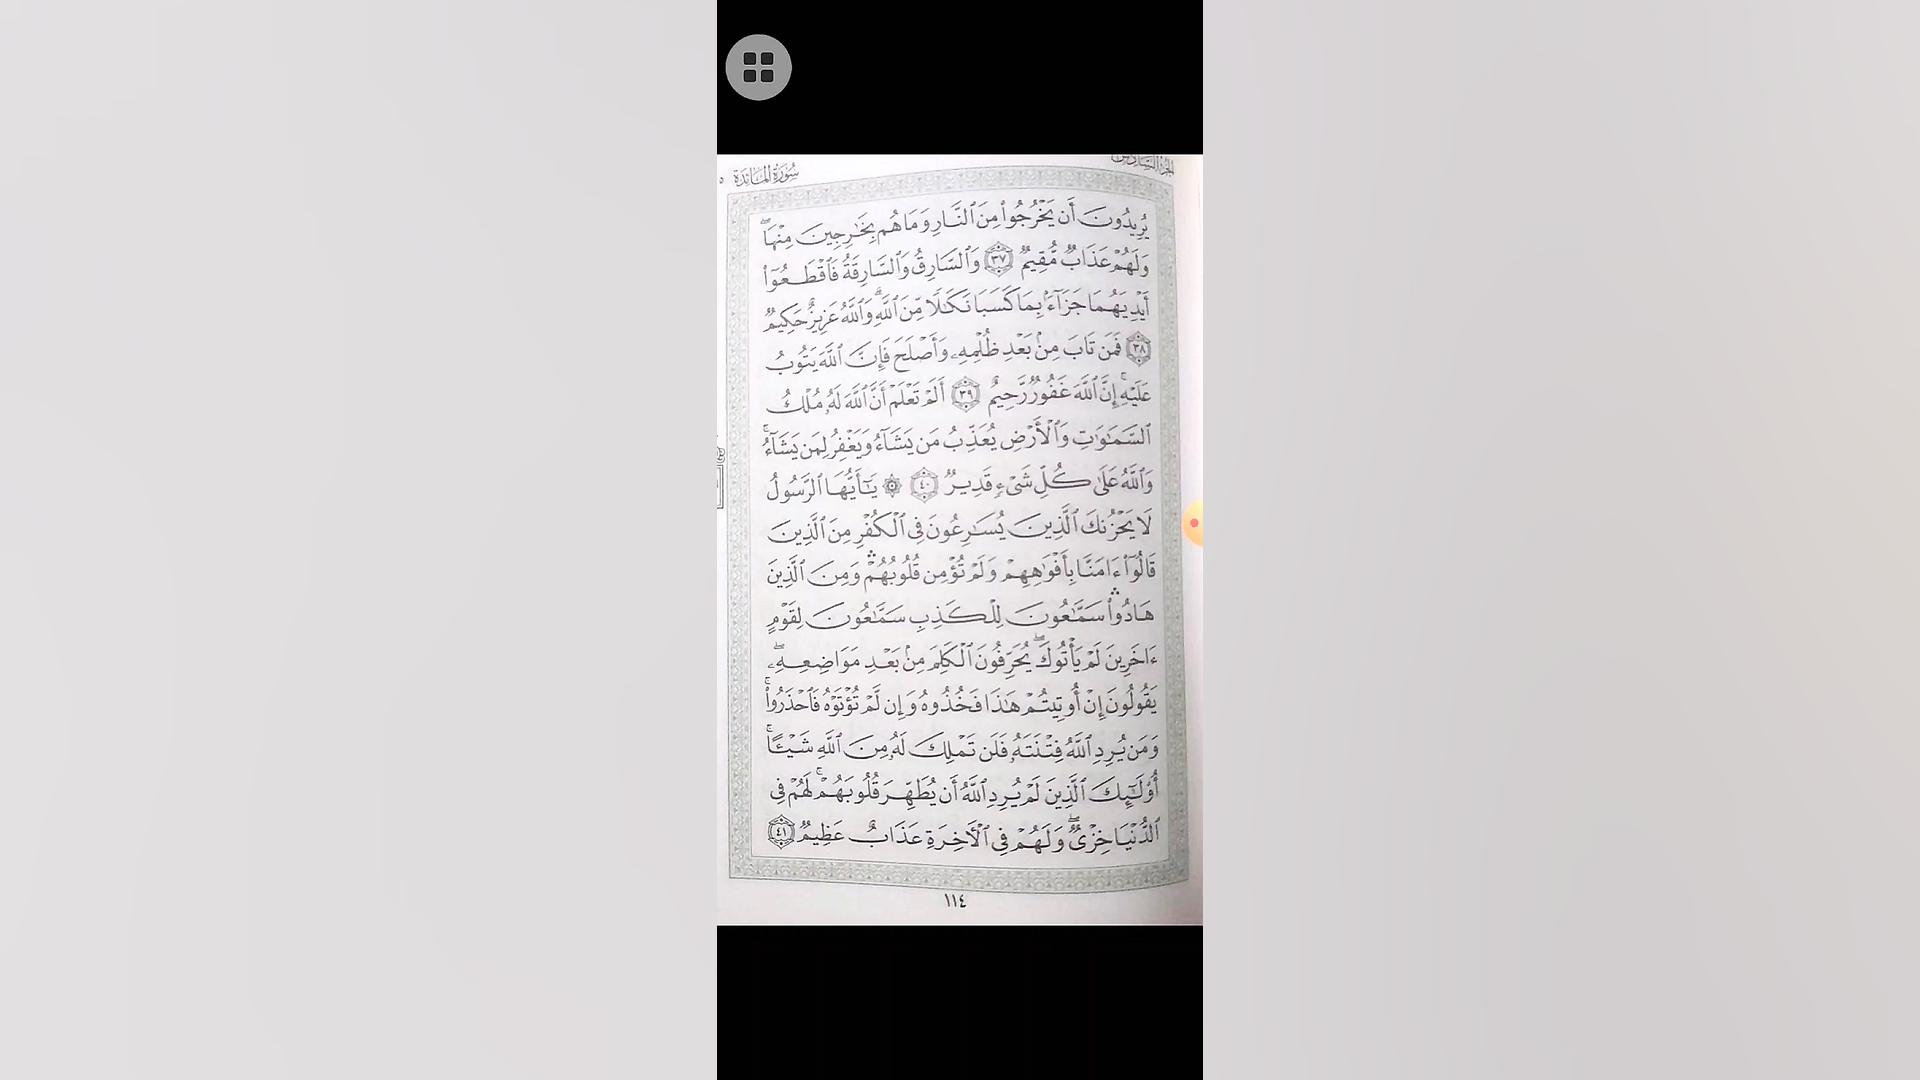 الجزء السادس
سورة المائدة ٥
يُرِيدُونَ أَن يَخْرُجُوا۟ مِنَ ٱلنَّارِ وَمَا هُم بِخَٰرِجِينَ مِنْهَا ۖ
وَلَهُمْ عَذَابٌ مُّقِيمٌ ٣٧ وَٱلسَّارِقُ وَٱلسَّارِقَةُ فَٱقْطَعُوٓا۟
أَيْدِيَهُمَا جَزَآءًۢ بِمَا كَسَبَا نَكَٰلًا مِّنَ ٱللَّهِ ۗ وَٱللَّهُ عَزِيزٌ حَكِيمٌ
٣٨ فَمَن تَابَ مِنۢ بَعْدِ ظُلْمِهِۦ وَأَصْلَحَ فَإِنَّ ٱللَّهَ يَتُوبُ
عَلَيْهِ ۚ إِنَّ ٱللَّهَ غَفُورٌ رَّحِيمٌ ٣٩ أَلَمْ تَعْلَمْ أَنَّ ٱللَّهَ لَهُۥ مُلْكُ
ٱلسَّمَٰوَٰتِ وَٱلْأَرْضِ يُعَذِّبُ مَن يَشَآءُ وَيَغْفِرُ لِمَن يَشَآءُ ۗ
وَٱللَّهُ عَلَىٰ كُلِّ شَىْءٍ قَدِيرٌ ٤٠ ۞ يَٰٓأَيُّهَا ٱلرَّسُولُ
لَا يَحْزُنكَ ٱلَّذِينَ يُسَٰرِعُونَ فِى ٱلْكُفْرِ مِنَ ٱلَّذِينَ
قَالُوٓا۟ ءَامَنَّا بِأَفْوَٰهِهِمْ وَلَمْ تُؤْمِن قُلُوبُهُمْ ۛ وَمِنَ ٱلَّذِينَ
هَادُوا۟ ۛ سَمَّٰعُونَ لِلْكَذِبِ سَمَّٰعُونَ لِقَوْمٍ
ءَاخَرِينَ لَمْ يَأْتُوكَ ۖ يُحَرِّفُونَ ٱلْكَلِمَ مِنۢ بَعْدِ مَوَاضِعِهِۦ ۖ
يَقُولُونَ إِنْ أُوتِيتُمْ هَٰذَا فَخُذُوهُ وَإِن لَّمْ تُؤْتَوْهُ فَٱحْذَرُوا۟ ۚ
وَمَن يُرِدِ ٱللَّهُ فِتْنَتَهُۥ فَلَن تَمْلِكَ لَهُۥ مِنَ ٱللَّهِ شَيْـًٔا ۚ
أُو۟لَٰٓئِكَ ٱلَّذِينَ لَمْ يُرِدِ ٱللَّهُ أَن يُطَهِّرَ قُلُوبَهُمْ ۚ لَهُمْ فِى
ٱلدُّنْيَا خِزْىٌ ۖ وَلَهُمْ فِى ٱلْءَاخِرَةِ عَذَابٌ عَظِيمٌ ٤١
١١٤